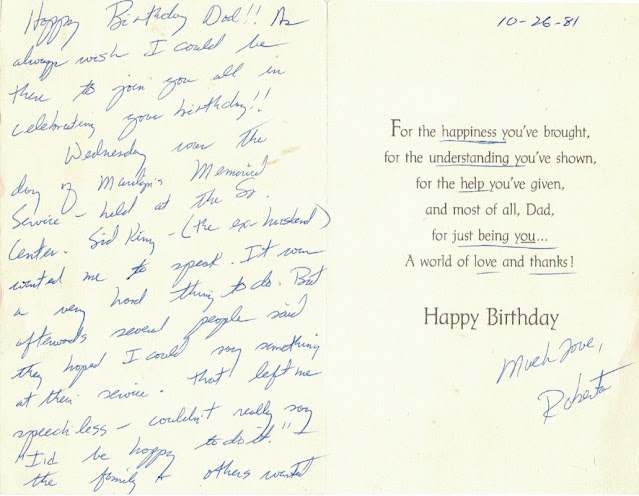 Happy Birthday Dad!! As
always wish I could be
there to join you all in
celebrating your birthday!!
Wednesday was the
day of Marilyn's Memorial
Service - held at the Sr.
Center. Sid King - (the ex-husband)
wanted me to speak. It was
a very hard thing to do. But
afterwards several people said
they hoped I could say something
at their service. That left me
speechless - couldn't really say
"I'd be happy to do it." I
the family & others wanted
10-26-81
For the happiness you've brought,
for the understanding you've shown,
for the help you've given,
and most of all, Dad,
for just being you...
A world of love and thanks!
Happy Birthday
Much love,
Roberta